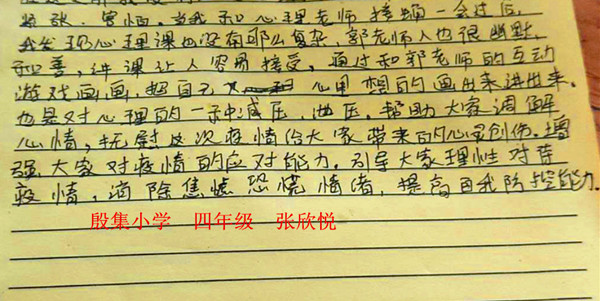 紧张、害怕。当我和心理老师接触一会过后,
我发现心理课也没有那么复杂,郭老师人也很幽默,
和善,讲课让人容易接受,通过和郭老师的互动
游戏画画,把自己心里想的画出来讲出来。
也是对心理的一种减压,泄压。帮助大家调解
心情,抚慰这次疫情给大家带来的心灵创伤。增
强大家对疫情的应对能力。引导大家理性对待
疫情,消除焦虑恐慌情绪,提高自我防控能力。
殷集小学 四年级 张欣悦